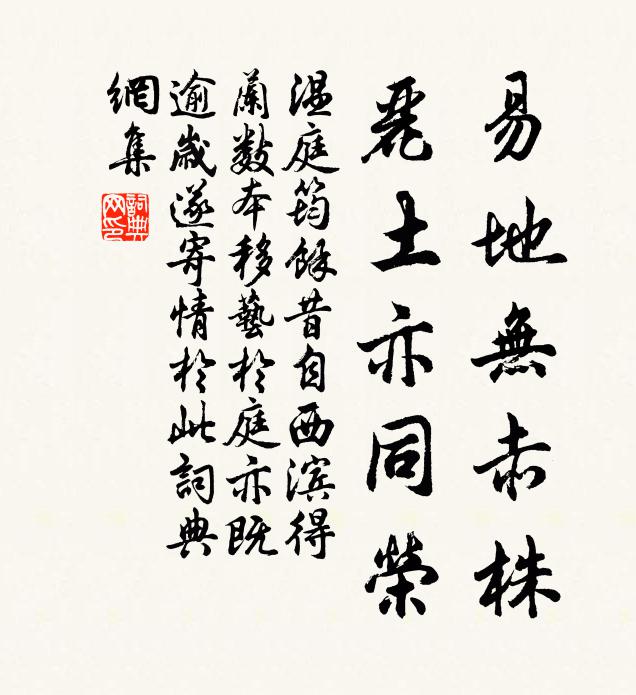 易地無赤株
麗土亦同榮
温庭筠餘昔自西滨得
蘭數本移藝於庭亦既
逾歲遂寄情於此詞典
網集
詞典
网印